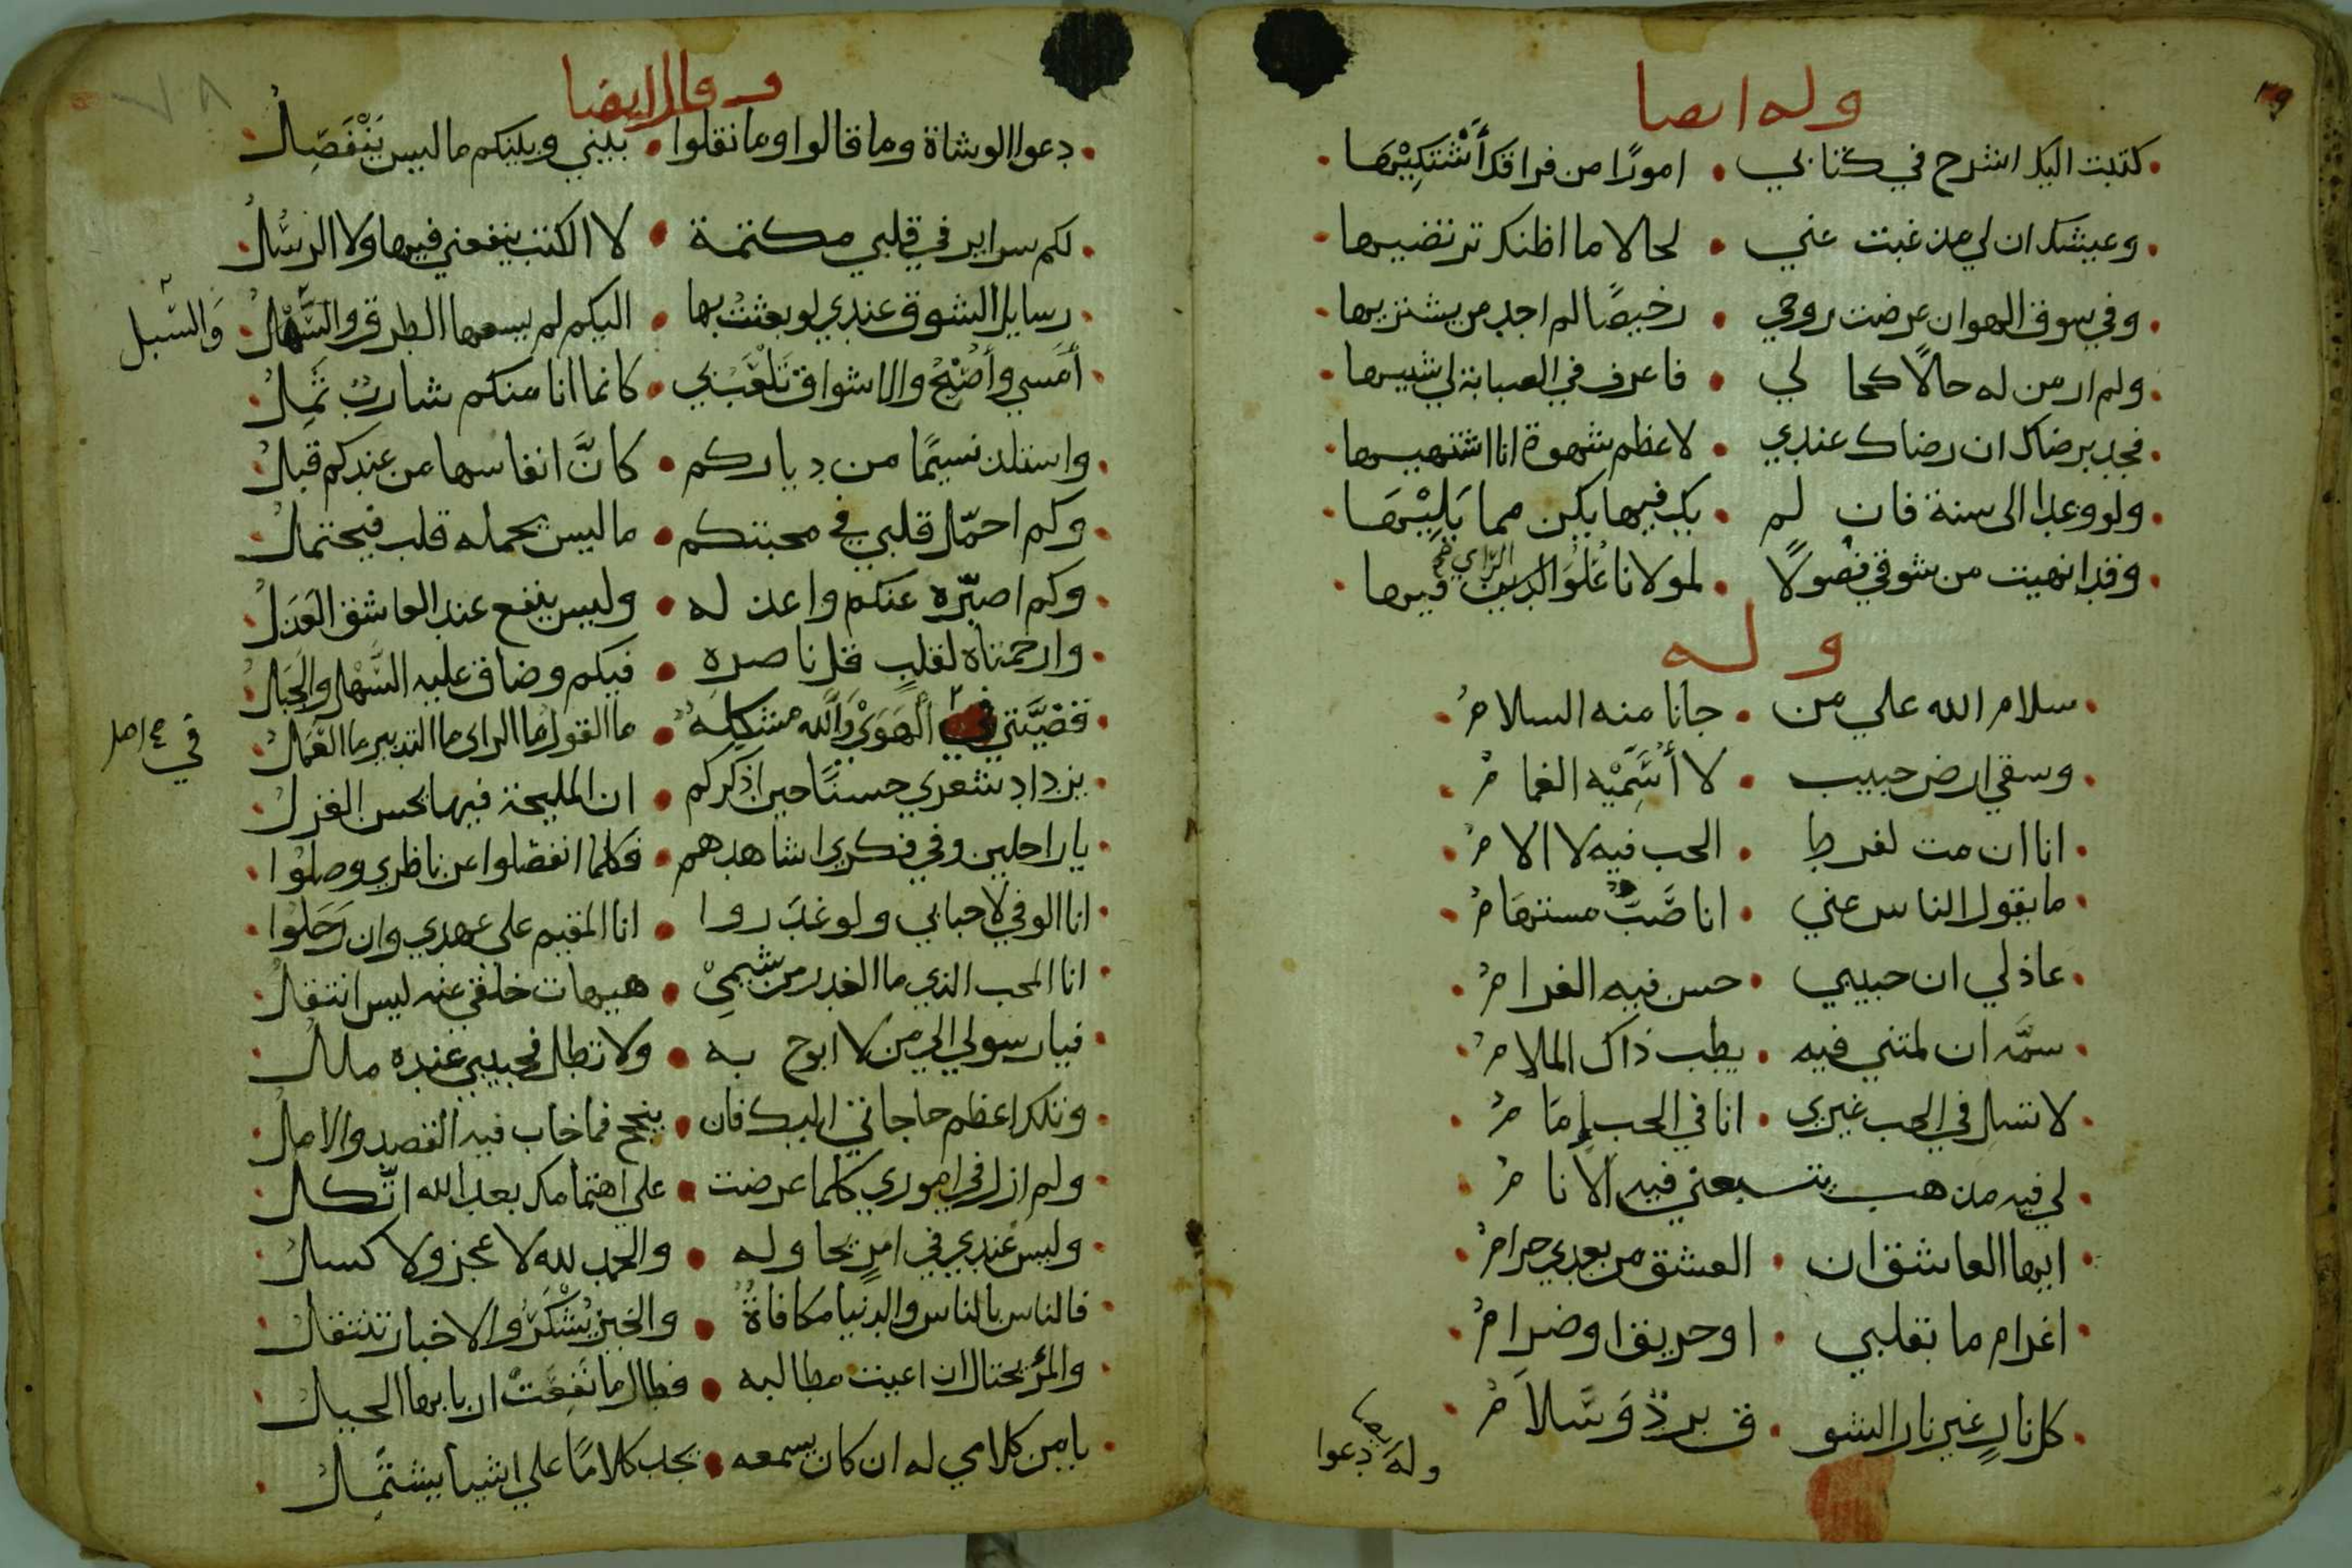 وله ايضا
كتبت اليك اشرح في كتابي • امورًا من فراقك أَشْتَكِيْهَا
وعيشك ان لي مذ غبت عني • لحالا ما اظنك ترتضيها
وفي سوق الهوان عرضت روحي • رخيصًا لم اجد من يشتريها
ولم ار من له حالًا كحا لي • فاعرف في الصبابة لي شبيها
فجد برضاك ان رضاك عندي • لاعظم شهوة انا اشتهيها
ولو وعدا الى سنة فان لم • يك فيها يكن مما يَلِيْهَا
الرَّاي
وقد انهيت من شوقي فصولًا • لمولانا عُلُوَ الدين فيها
وله
سلام الله علي من • جانا منه السلامُ
وسقي ارض حبيب • لا أُسَمِّيْه الغمامُ
انا ان مت لفرط • الحب فيه لا الامُ
ما يقول الناس عني • انا صَبٌّ مستهَامُ
عاذلي ان حبيبي • حسن فيه الغرامُ
سمّه ان لمتني فيه • يطب ذاك الملامُ
لا تسل في الحب غيري • انا في الحب إِمَامُ
لي فيه مذهب يتبعني فيه الأنامُ
ايها العاشق ان • العشق من بعدي حرامُ
اغرام ما بقلبي • او حريق او ضرامُ
كل نارٍ غير نار الشو • ق بردٌ وَسَلاَمُ
وله دعوا
٧٨
وقال ايضا
دعوا الوشاة وما قالوا وما نقلوا • بيني وبينكم ما ليس يَنْفَصِلُ
لكم سراير في قلبي مكتمة • لا الكتب ينفعني فيها ولا الرسُلُ
رسايل الشوق عندي لو بعثتُ بها • اليكم لم يسعها الطرق والسَّهلُ
وَالسّبل
أُمْسي وأُصْبِحُ والاشواق تَلْعَبُ بي • كانما انا منكم شاربٌ ثَمِلُ
واستلذ نسيمًا من دياركم • كانَّ انفاسها من عندكم قبلُ
وكم احمّل قلبي في محبتكم • ما ليس يحمله قلب فيحتملُ
وكم اصبّره عنكم واعذ له • وليس ينفع عند العاشق العَذَلُ
وارحمتاه لقلبٍ قل ناصره • فيكم وضاق عليه السَّهل والجَبلُ
قضيَّتي في الهَوَيْ وَالله مشكلةٌ • ما القول ما الراي ما التدبير ما العَمَلُ
في صح اصل
يزداد شعري حسنًا حين اذكركم • ان المليحة فيها يحسن الغزلُ
يا راحلين وفي فكري اشاهدهم • فكلما انفصلوا عن ناظري وصلُوا
انا الوفي لاحبابي ولو غدَروا • انا المقيم علي عهدي وان رَحَلُوا
انا المحب الذي ما الغدر من شِيَمِيْ • هيهات خلقي عنه ليس انتقلُ
فيا رسولي الي من لا ابوح به • ولا تطل فحبيبي عنده مللُ
وتلك اعظم حاجاتي اليك فان • ينجح فما خاب فيه القصد والاملُ
ولم ازل في اموري كلما عرضت • علي اهتمامك بعد الله اتّكلُ
وليس عندي في امرٍ تحاوله • والحمد لله لا عجز ولا كسلُ
فالناس بالناس والدنيا مكافاةٌ • والخير يُشْكَرُ والاخبار تنتقلُ
والمرُ يحتال ان اعيت مطالبه • فطال ما نَفِعَتْ اربابها الحيلُ
يا من كلامي له ان كان يسمعه • تجد كلامًا علي اشيا يشتَمِلُ